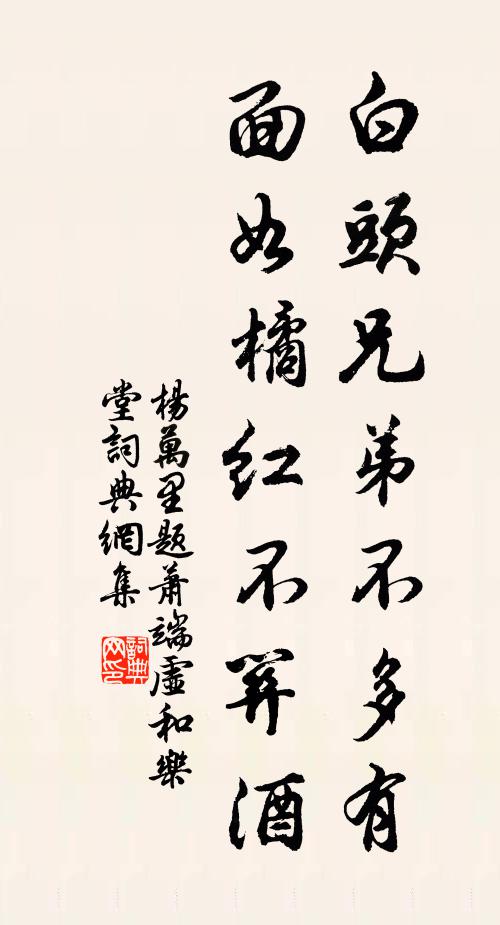 白頭兄弟不多有
面如橘紅不筭酒
楊萬里題蕭端虛和樂
堂詞典網集
詞典
网印